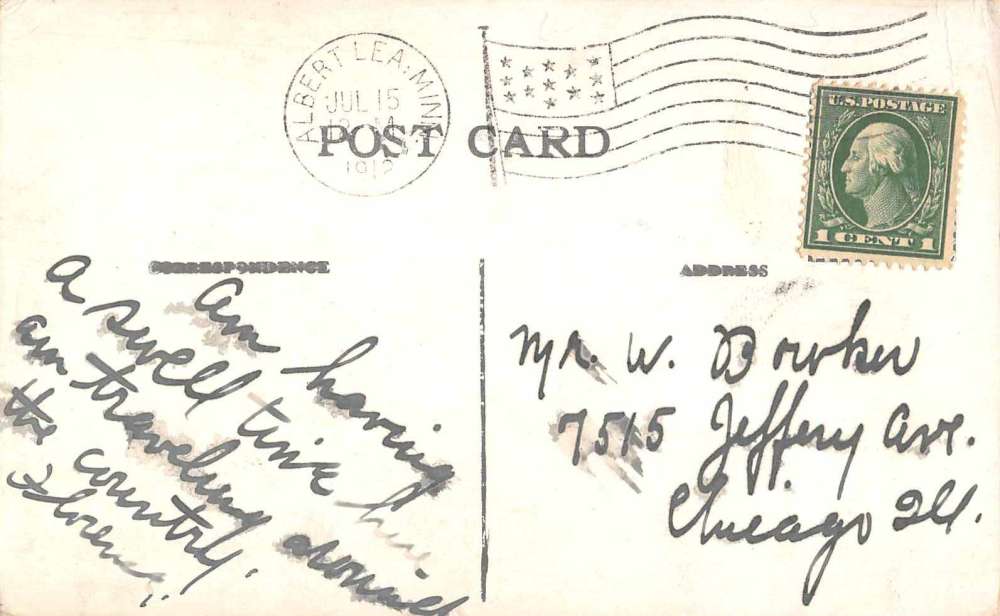 ALBERT LEA, MINN.
JUL 15
12 M
1912
POST CARD
U.S. POSTAGE
1 CENT 1
CORRESPONDENCE
ADDRESS
Am having
a swell time here
am traveling around
the country.
Florence
Mr. W. Bowker
7515 Jeffery Ave.
Chicago Ill.